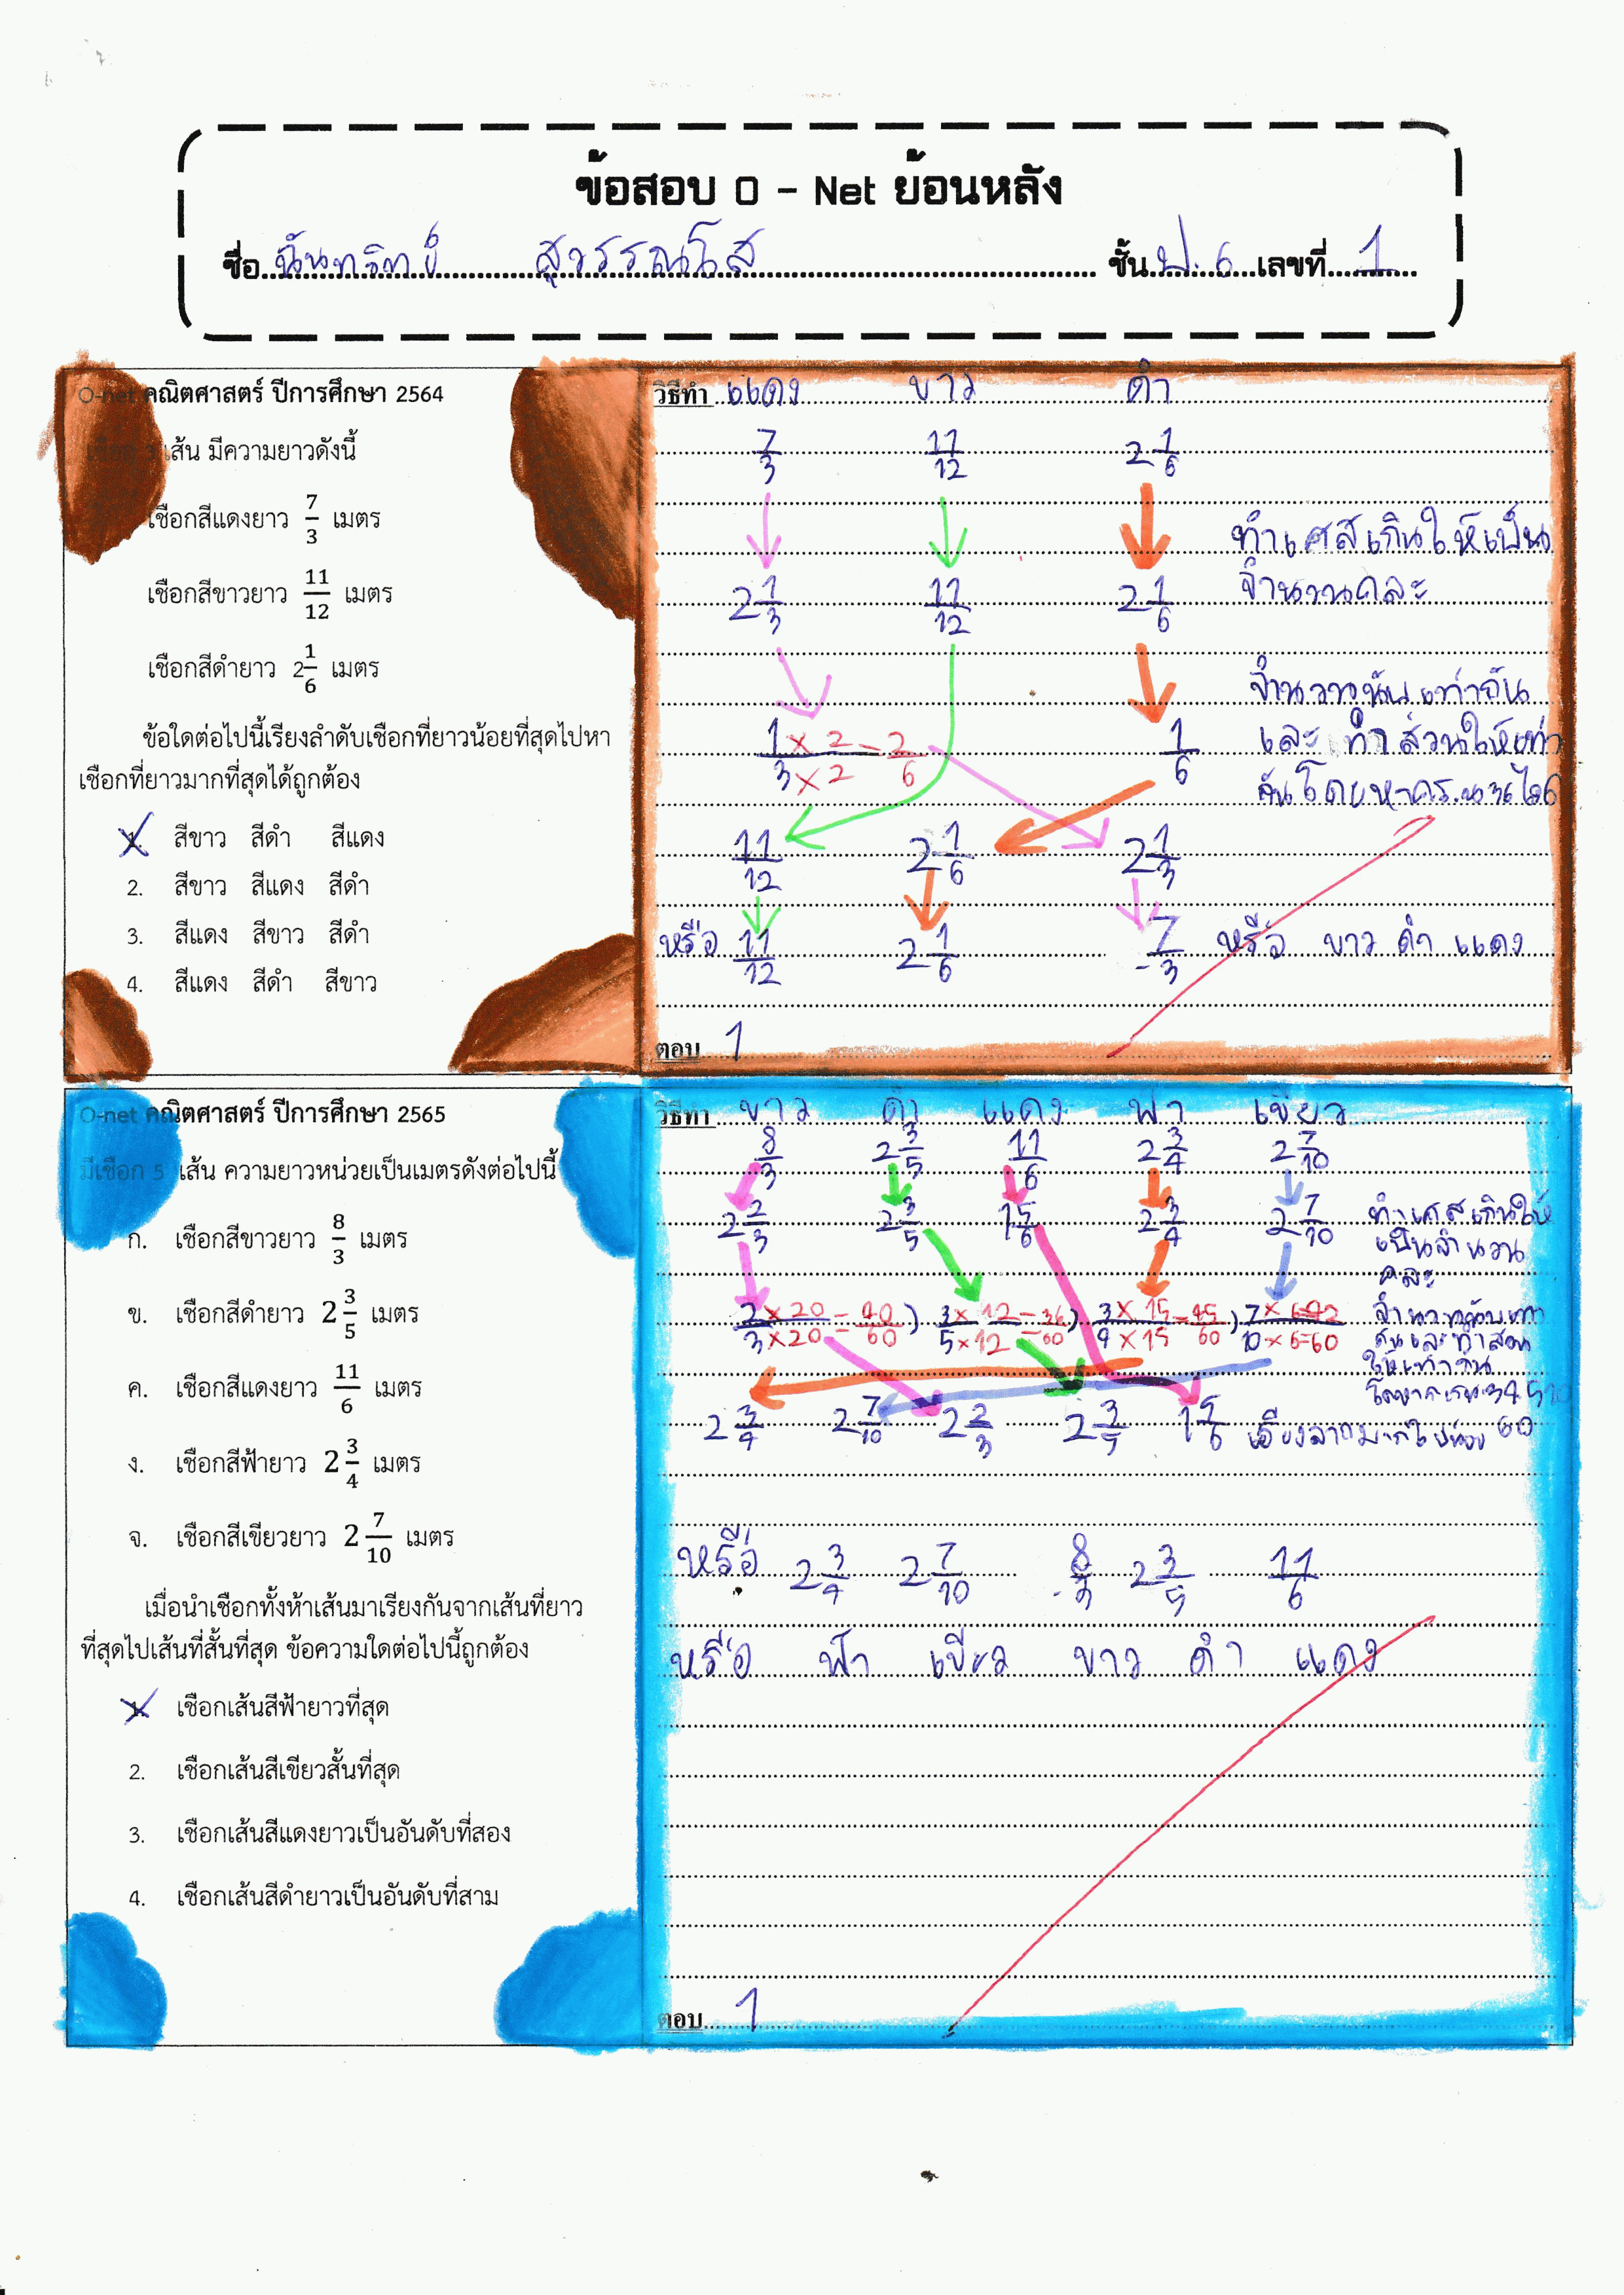 ข้อสอบ O - Net ย้อนหลัง
ชื่อ สุวรรณโส ชั้น ป.6 เลขที่ 1
O-net คณิตศาสตร์ ปีการศึกษา 2564
เชือก 3 เส้น มีความยาวดังนี้
เชือกสีแดงยาว 7/3 เมตร
เชือกสีขาวยาว 11/12 เมตร
เชือกสีดำยาว 2 1/6 เมตร
ข้อใดต่อไปนี้เรียงลำดับเชือกที่ยาวน้อยที่สุดไปหา
เชือกที่ยาวมากที่สุดได้ถูกต้อง
1. สีขาว สีดำ สีแดง
2. สีขาว สีแดง สีดำ
3. สีแดง สีขาว สีดำ
4. สีแดง สีดำ สีขาว
วิธีทำ แดง ขาว ดำ
7/3 11/12 2 1/6
ทำเศสเกินให้เป็น
2 1/3 11/12 2 1/6 จำนวนคละ
จำนวนนับเท่ากัน
1/3 × 2/2 = 2/6 1/6 และ ทำส่วนให้เท่า
กันโดยหาค.ร.น 3 6 ได้ 6
11/12 2 1/6 2 1/3
หรือ 11/12 2 1/6 7/3 หรือ ขาว ดำ แดง
ตอบ 1
O-net คณิตศาสตร์ ปีการศึกษา 2565
มีเชือก 5 เส้น ความยาวหน่วยเป็นเมตรดังต่อไปนี้
ก. เชือกสีขาวยาว 8/3 เมตร
ข. เชือกสีดำยาว 2 3/5 เมตร
ค. เชือกสีแดงยาว 11/6 เมตร
ง. เชือกสีฟ้ายาว 2 3/4 เมตร
จ. เชือกสีเขียวยาว 2 7/10 เมตร
เมื่อนำเชือกทั้งห้าเส้นมาเรียงกันจากเส้นที่ยาว
ที่สุดไปเส้นที่สั้นที่สุด ข้อความใดต่อไปนี้ถูกต้อง
1. เชือกเส้นสีฟ้ายาวที่สุด
2. เชือกเส้นสีเขียวสั้นที่สุด
3. เชือกเส้นสีแดงยาวเป็นอันดับที่สอง
4. เชือกเส้นสีดำยาวเป็นอันดับที่สาม
วิธีทำ ขาว ดำ แดง ฟ้า เขียว
8/3 2 3/5 11/6 2 3/4 2 7/10
2 2/3 2 3/5 1 5/6 2 3/4 2 7/10 ทำเศสเกินให้
เป็นจำนวน
คละ
2/3 × 20/20 = 40/60) 3/5 × 12/12 = 36/60) 3/4 × 15/15 = 45/60) 7/10 × 6/6 = 42/60 จำนวนนับเท่า
กันและทำส่วน
ให้เท่ากัน
2 3/4 2 7/10 2 2/3 2 3/5 1 5/6 เรียงจากมากไปน้อย 60
หรือ 2 3/4 2 7/10 8/3 2 3/5 11/6
หรือ ฟ้า เขียว ขาว ดำ แดง
ตอบ 1